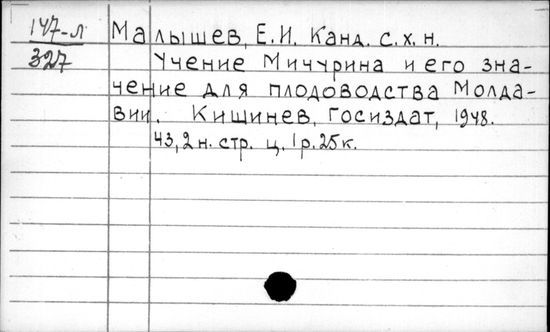 147-л
327
Малышев, Е.И. Канд. с.х.н.
Учение Мичурина и его зна-
чение для плодоводства Молда-
вии. Кишинев, Госиздат, 1948.
43,2н. стр. ц. 1р.25к.